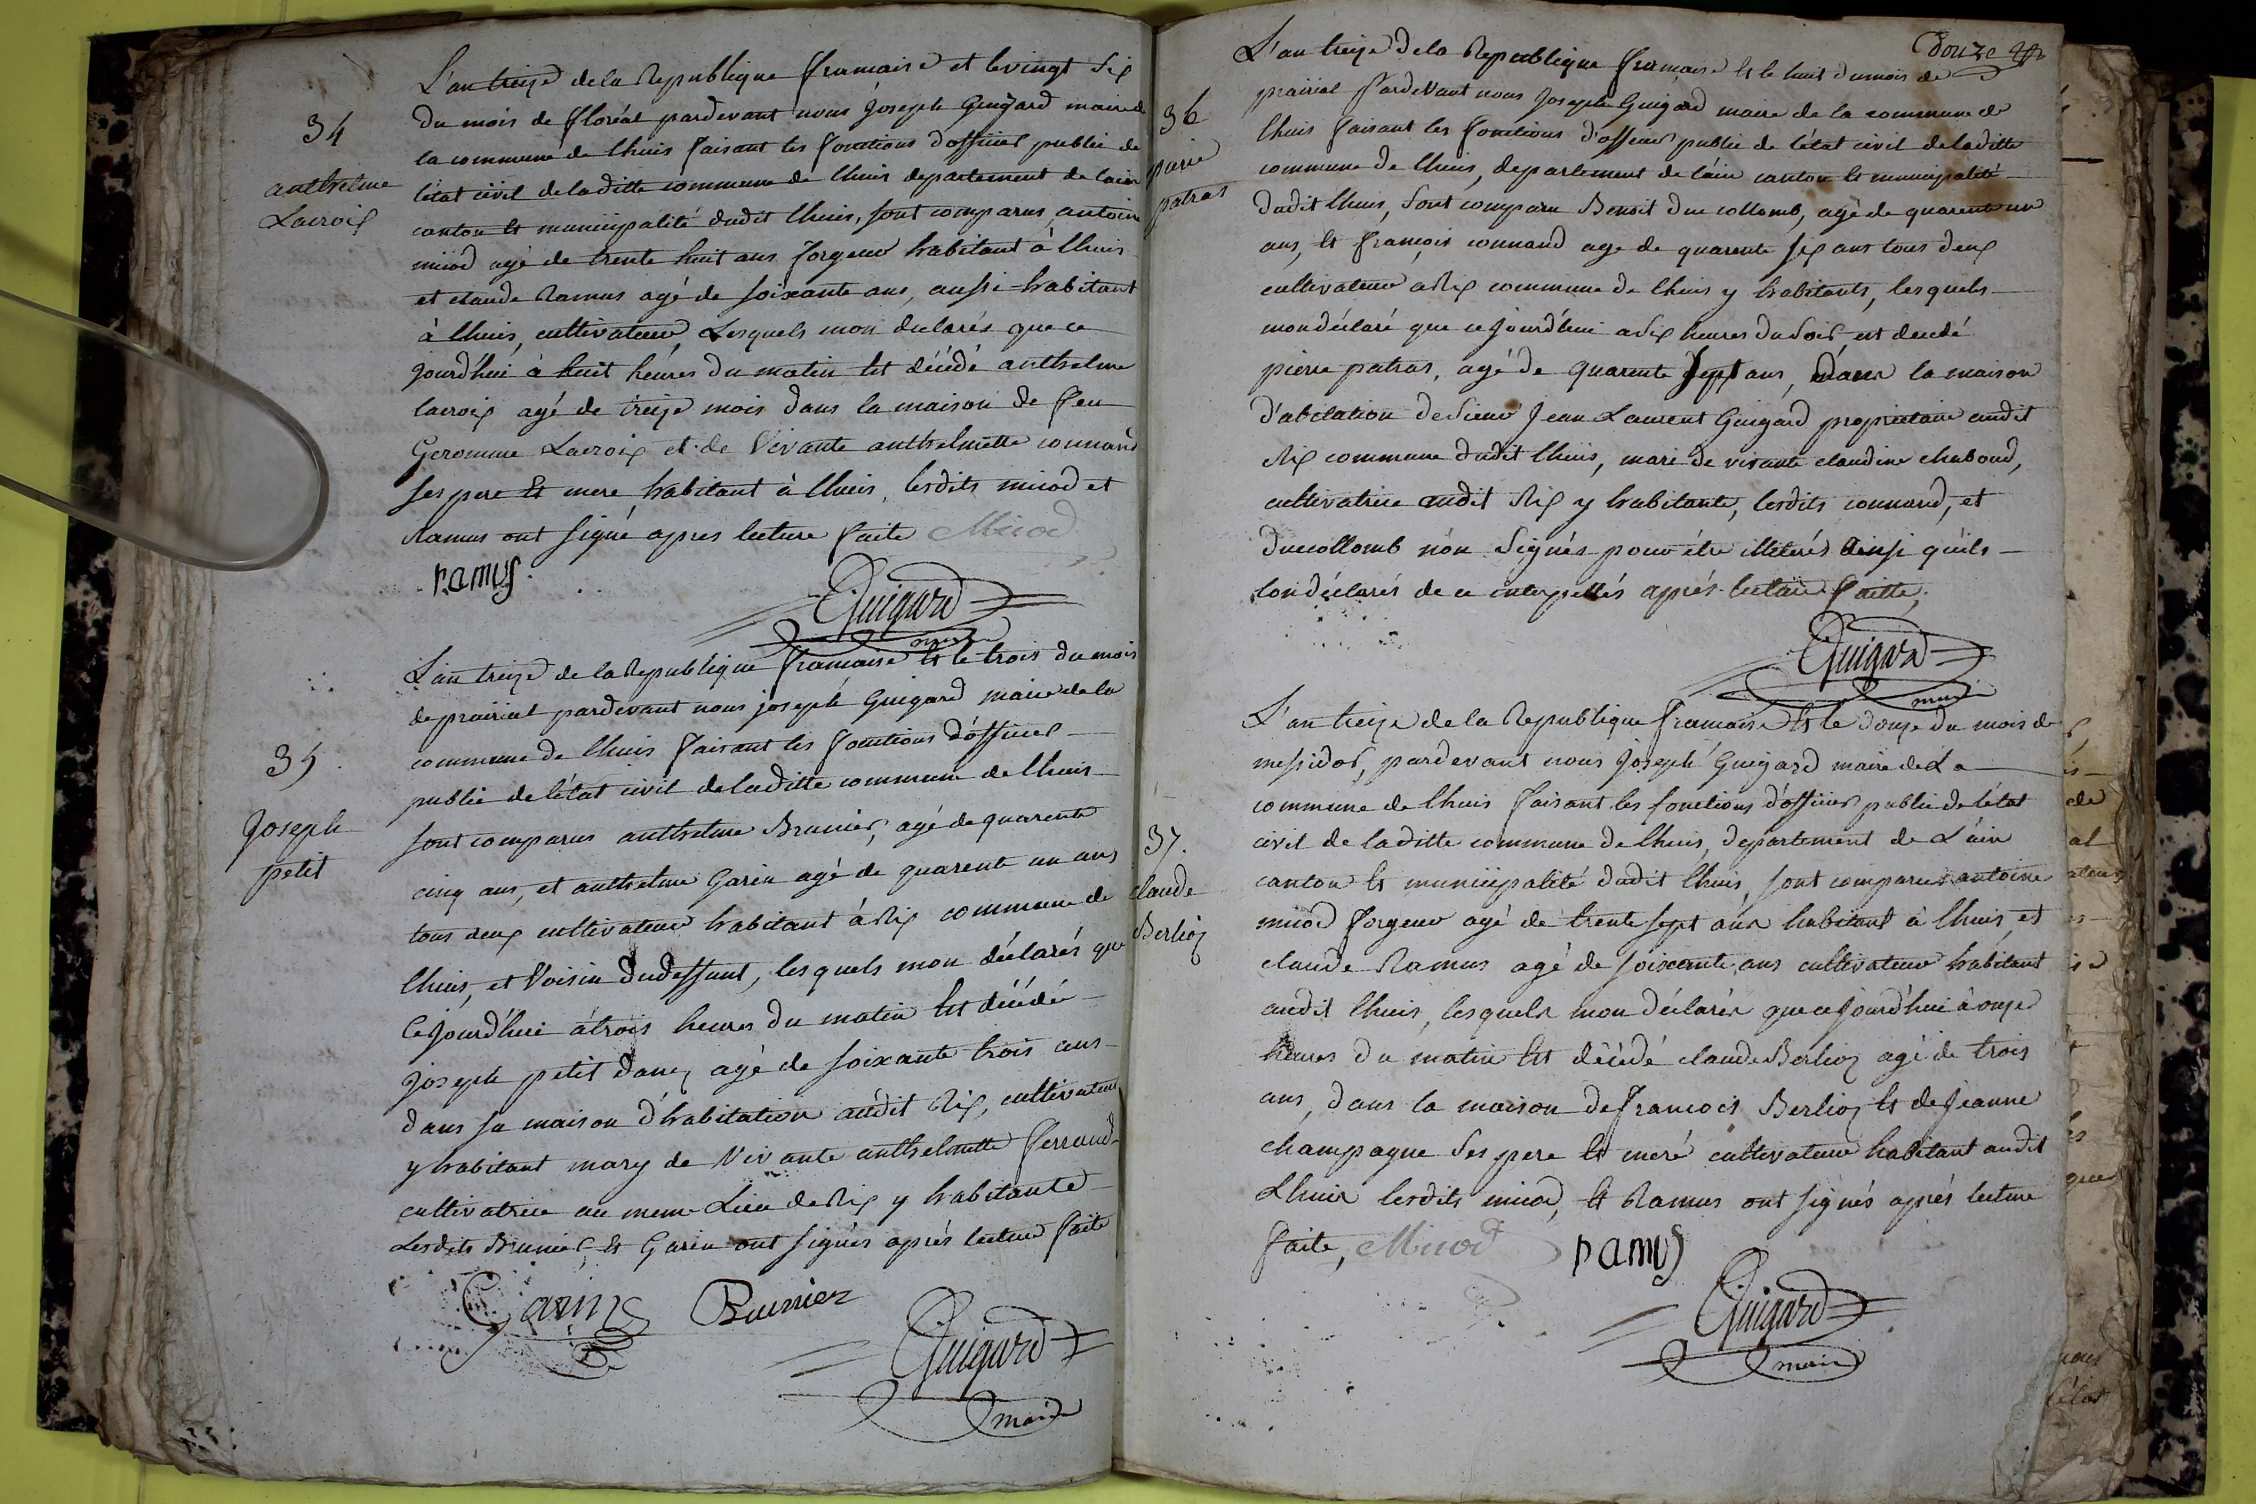 34
anthelme
Lacroix
L'an treize de la Republique francaise et le vingt six
du mois de floréal pardevant nous Joseph Guigard maire de
la commune de lhuis faisant les fonctions d'officier public de
létat civil de laditte commune de lhuis departement de lain
canton et municipalité dudit lhuis, sont comparus, antoine
miod agé de trente huit ans forgeur habitant à lhuis
et claude Ramus agé de soixante ans, aussi habitant
à lhuis, cultivateur, Lesquels mon declarés que ce
jourd'hui à huit héures du matin est décédé anthelme
lacroix agé de treize mois dans la maison de feu
Geromme Lacroix et de Vivante anthelmette connand
ses pere et mere, habitant à lhuis, lesdits miod et
Ramus ont signé apres lecture faite Miod
ramus
Guigard
maire
35
Joseph
petit
L'an treize de la Republique francaise et le trois du mois
de prairial pardevant nous joseph Guigard maire de la
commune de lhuis faisant les fonctions d'officier
public de létat civil de laditte commune de lhuis
sont comparus anthelme Brunier, agé de quarente
cinq ans, et anthelme Garin agé de quarente un ans
tous deux cultivateur habitant à Rix commune de
lhuis, et Voisin dudeffunt, lesquels mon déclarés que
Cejourd'hui à trois heures du matin est décédé
joseph petit danz agé de soixante trois ans
dans sa maison d'habitation audit Rix, cultivateur
y habitant mary de Vivante anthelmette ferrand
cultivatrice au meme Lieu de Rix y habitante
Lesdits Brunier, et Garin ont signés aprés lecture faite
Garin Brunier
Guigard
maire
douze
36
pierre
patras
L'an treize de la Republique francaise et le huit du mois de
prairial pardevant nous Joseph Guigard maire de la commune de
lhuis faisant les fonctions d'officier public de létat civil de laditte
commune de lhuis, departement de láin canton et municipalité
dudit lhuis, sont comparu Benoit duc collomb, agé de quarente un
ans, et françois connand age de quarente six ans tous deux
cultivateur a Rix commune de lhuis y habitants, lesquels
mon déclaré que ce jourd'hui a six heures du soir, est decedé
pierre patras, agé de quarente sept ans, dans la maison
d'abitation de sieur Jean Laurent Guigard proprietaire audit
Rix commune dudit lhuis, mari de vivante claudine chaboud,
cultivatrice audit Rix y habitante, lesdits connand, et
duccollomb nón signés pour étre illiterés ainsi qu'ils
lon déclarés de ce interpellés aprés lecture faitte,
Guigard
maire
37.
claude
Berlioz
L'an treize de la Republique francaise et le douze du mois de
messidor, pardevant nous Joseph Guigard maire de La
commune de lhuis faisant les fonctions d'officier public de létat
civil de laditte commune de lhuis, departement de L'ain
canton et municipalité dudit lhuis, sont comparus antoine
miod forgeur agé de trente sept ans habitant à lhuis, et
claude Ramus agé de soixante ans cultivateur habitant
audit lhuis, lesquels mon déclarés que ce jourd'hui à onze
héures du matin est décédé claude Berlioz agé de trois
ans, dans la maison de francois Berlioz et de jeanne
champagne ses pere et meré cultivateur habitant audit
Lhuis lesdits miod, et Ramus ont signés aprés lecture
faite, Miod ramus
Guigard
maire